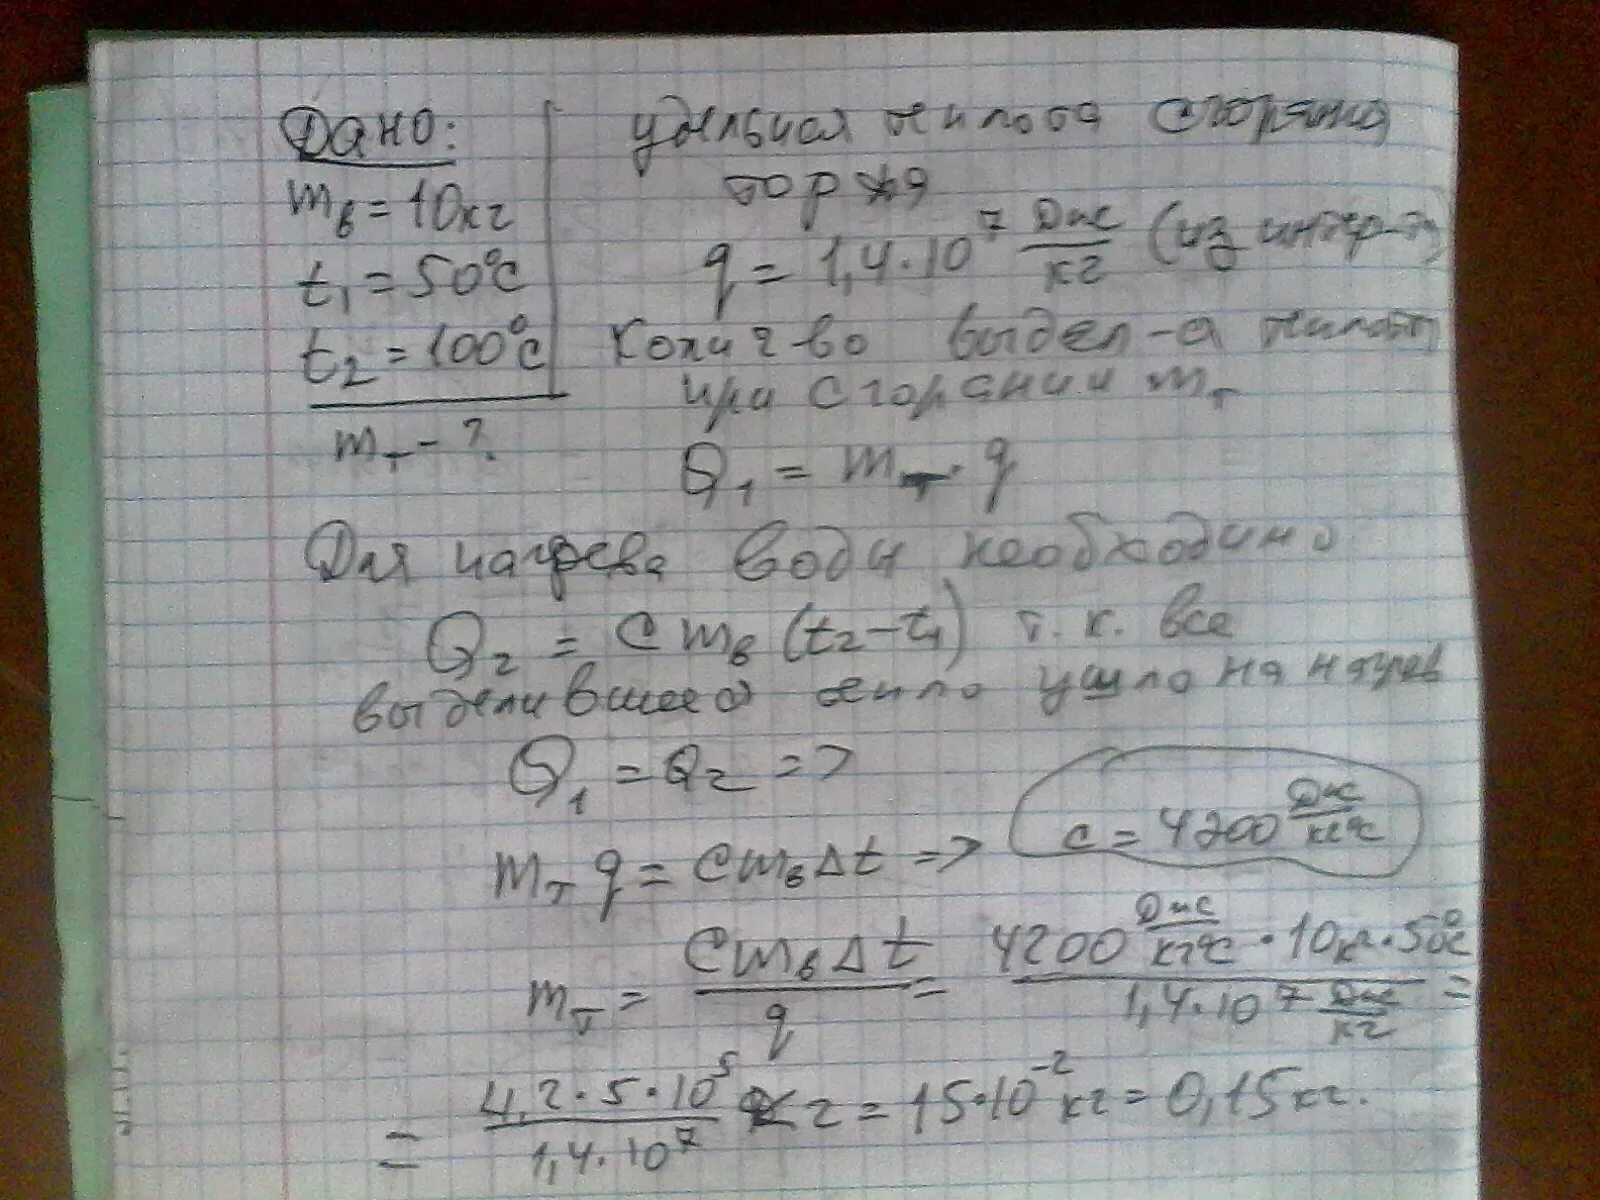 Дано:
mв = 10кг
t₁ = 50°C
t₂ = 100°C
mт - ?
удельная теплота сгорания
торфа
q = 1,4·10⁷ Дж/кг (из интер-та)
Колич во выдел-я теплоты
при сгорании mт
Q₁ = mт · q
Для нагрева воды необходимо
Q₂ = c mв (t₂ - t₁) т. к. все
выделившееся тепло ушло на нагрев
Q₁ = Q₂ =>
mт q = c mв Δt => c = 4200 Дж/кг°C
mт = c mв Δt / q = 4200 Дж/кг°C · 10кг · 50°C / 1,4·10⁷ Дж/кг =
= 4,2·5·10⁵ / 1,4·10⁷ кг = 15·10⁻² кг = 0,15кг.